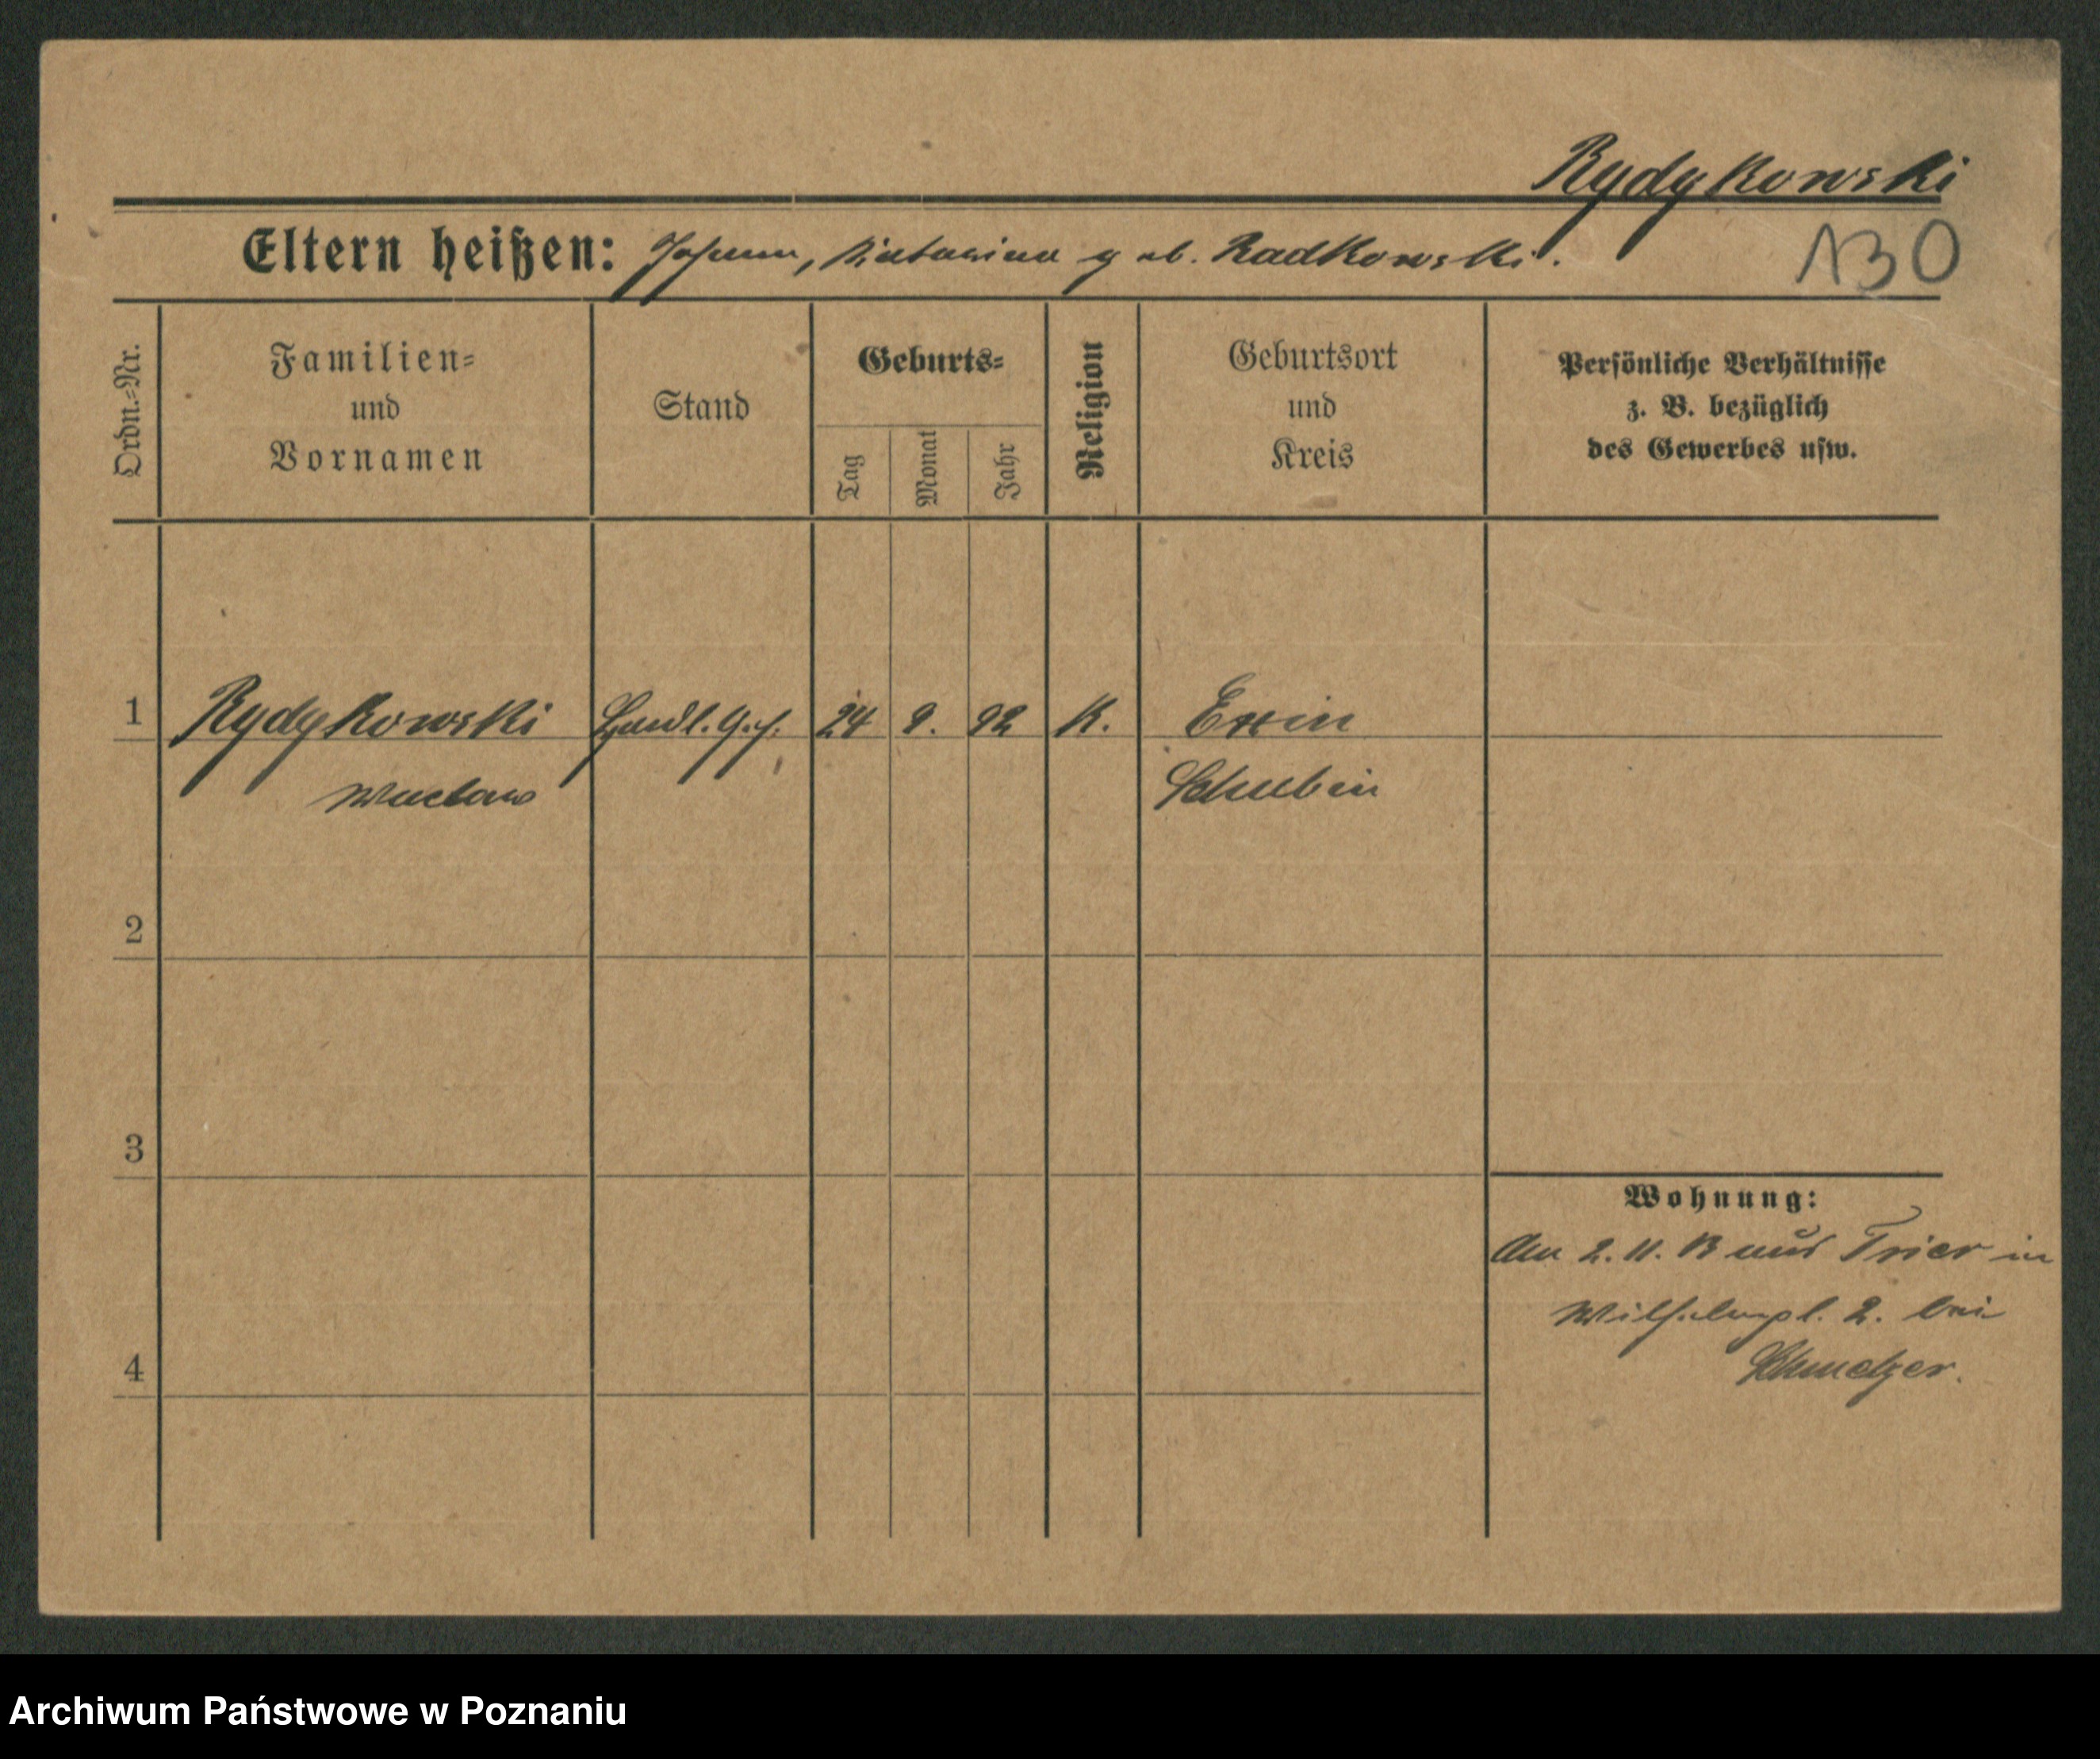 Rydykowski
Eltern heißen: Johann, Viktoria geb. Radkowski.
130
Ordn.-Nr.
Familien-
und
Vornamen
Stand
Geburts-
Tag
Monat
Jahr
Religion
Geburtsort
und
Kreis
Persönliche Verhältnisse
z. B. bezüglich
des Gewerbes usw.
1 Rydykowski Handl. Geh. 24 9. 92 K. Exin
Waclaw Schubin
2
3
Wohnung:
Am 2. 11. 13 aus Trier in
Wilhelmpl. 2. bei
Schmelzer.
4
Archiwum Państwowe w Poznaniu